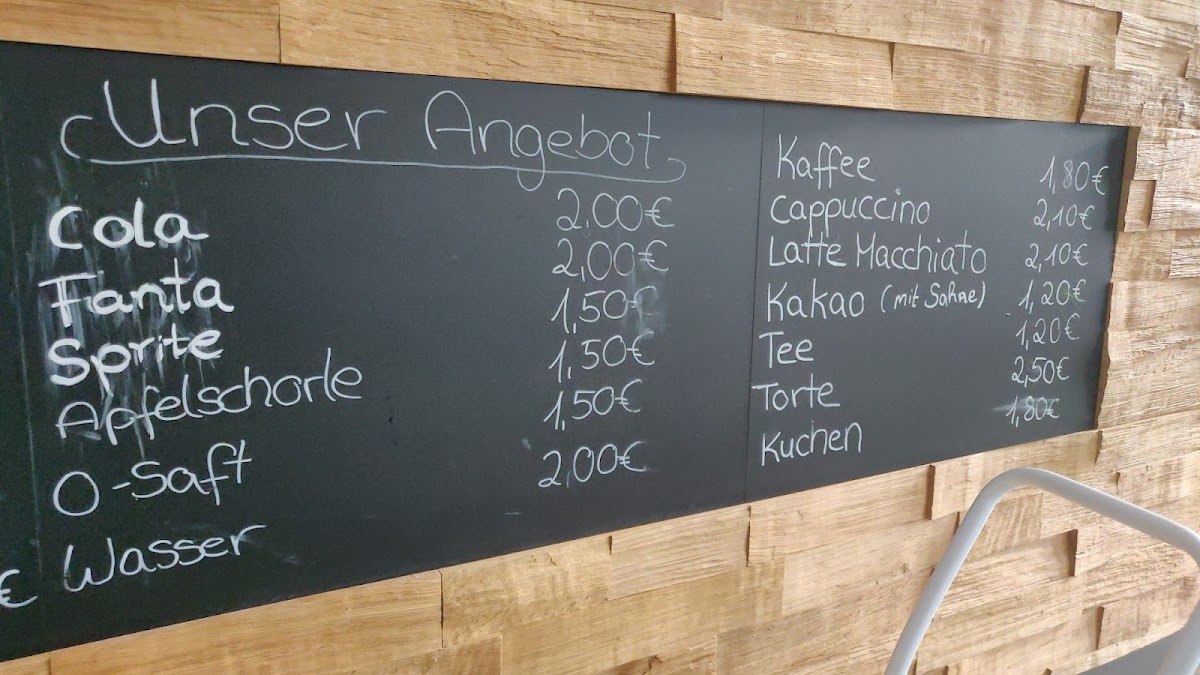 Unser Angebot
Cola 2.00€
Fanta 2,00€
Sprite 1,50€
Apfelschorle 1,50€
O-Saft 1,50€
Wasser 2,00€
€
Kaffee 1,80€
Cappuccino 2,10€
Latte Macchiato 2,10€
Kakao (mit Sahne) 1,20€
Tee 1,20€
Torte 2,50€
Kuchen 1,80€